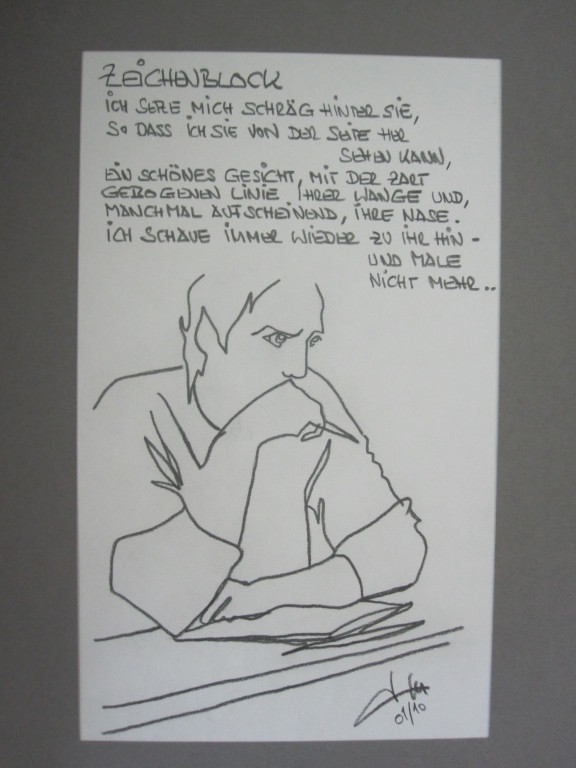 ZEICHENBLOCK
ICH SETZE MICH SCHRÄG HINTER SIE,
SO DASS ICH SIE VON DER SEITE HER
SEHEN KANN,
EIN SCHÖNES GESICHT, MIT DER ZART
GEBOGENEN LINIE IHRER WANGE UND,
MANCHMAL AUFSCHEINEND, IHRE NASE.
ICH SCHAUE IMMER WIEDER ZU IHR HIN -
UND MALE
NICHT MEHR..
01/10